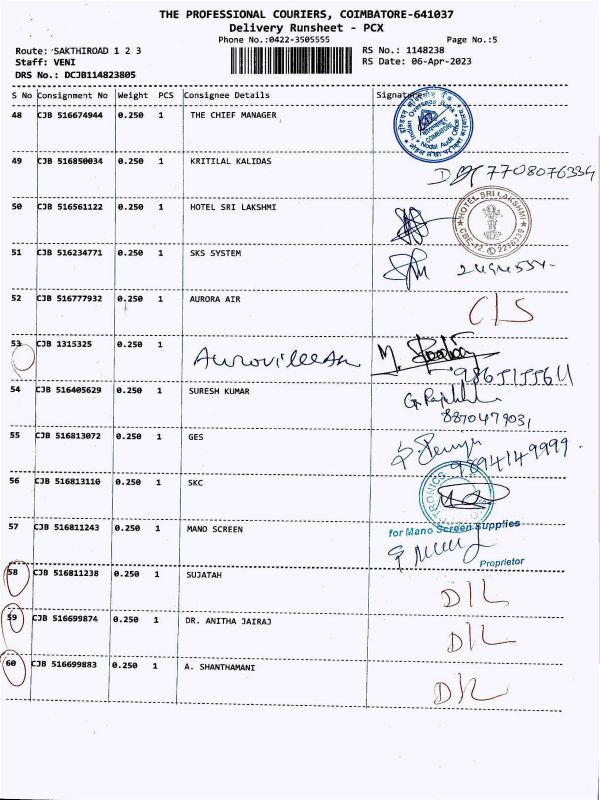 THE PROFESSIONAL COURIERS, COIMBATORE-641037
Delivery Runsheet - PCX
Phone No.:0422-3505555 Page No.:5
Route: SAKTHIROAD 1 2 3 RS No.: 1148238
Staff: VENI RS Date: 06-Apr-2023
DRS No.: DCJB114823805
S No Consignment No Weight PCS Consignee Details Signature
48 CJB 516674944 0.250 1 THE CHIEF MANAGER
Indian Overseas Bank
COIMBATORE
Nodal Audit Office
49 CJB 516850034 0.250 1 KRITILAL KALIDAS
7708076334
50 CJB 516561122 0.250 1 HOTEL SRI LAKSHMI
HOTEL SRI LAKSHMI
51 CJB 516234771 0.250 1 SKS SYSTEM
52 CJB 516777932 0.250 1 AURORA AIR C/S
53 CJB 1315325 0.250 1
54 CJB 516405629 0.250 1 SURESH KUMAR
8870479031
55 CJB 516813072 0.250 1 GES
9894149999.
56 CJB 516813110 0.250 1 SKC
57 CJB 516811243 0.250 1 MANO SCREEN
for Mano Screen Supplies
Proprietor
58 CJB 516811238 0.250 1 SUJATAH D/L
59 CJB 516699874 0.250 1 DR. ANITHA JAIRAJ D/L
60 CJB 516699883 0.250 1 A. SHANTHAMANI D/L